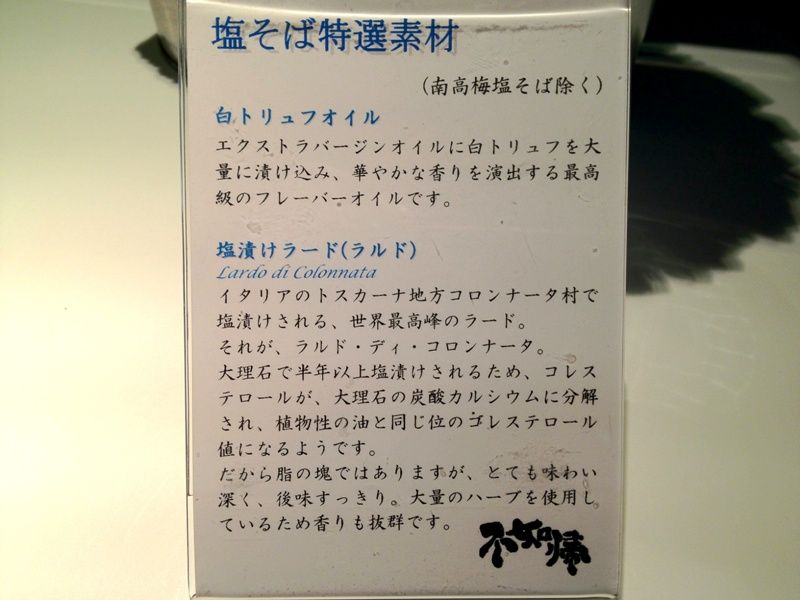 塩そば特選素材
(南高梅塩そば除く)
白トリュフオイル
エクストラバージンオイルに白トリュフを大
量に漬け込み、華やかな香りを演出する最高
級のフレーバーオイルです。
塩漬けラード(ラルド)
Lardo di Colonnata
イタリアのトスカーナ地方コロンナータ村で
塩漬けされる、世界最高峰のラード。
それが、ラルド・ディ・コロンナータ。
大理石で半年以上塩漬けされるため、コレス
テロールが、大理石の炭酸カルシウムに分解
され、植物性の油と同じ位のコレステロール
値になるようです。
だから脂の塊ではありますが、とても味わい
深く、後味すっきり。大量のハーブを使用し
ているため香りも抜群です。
不如帰